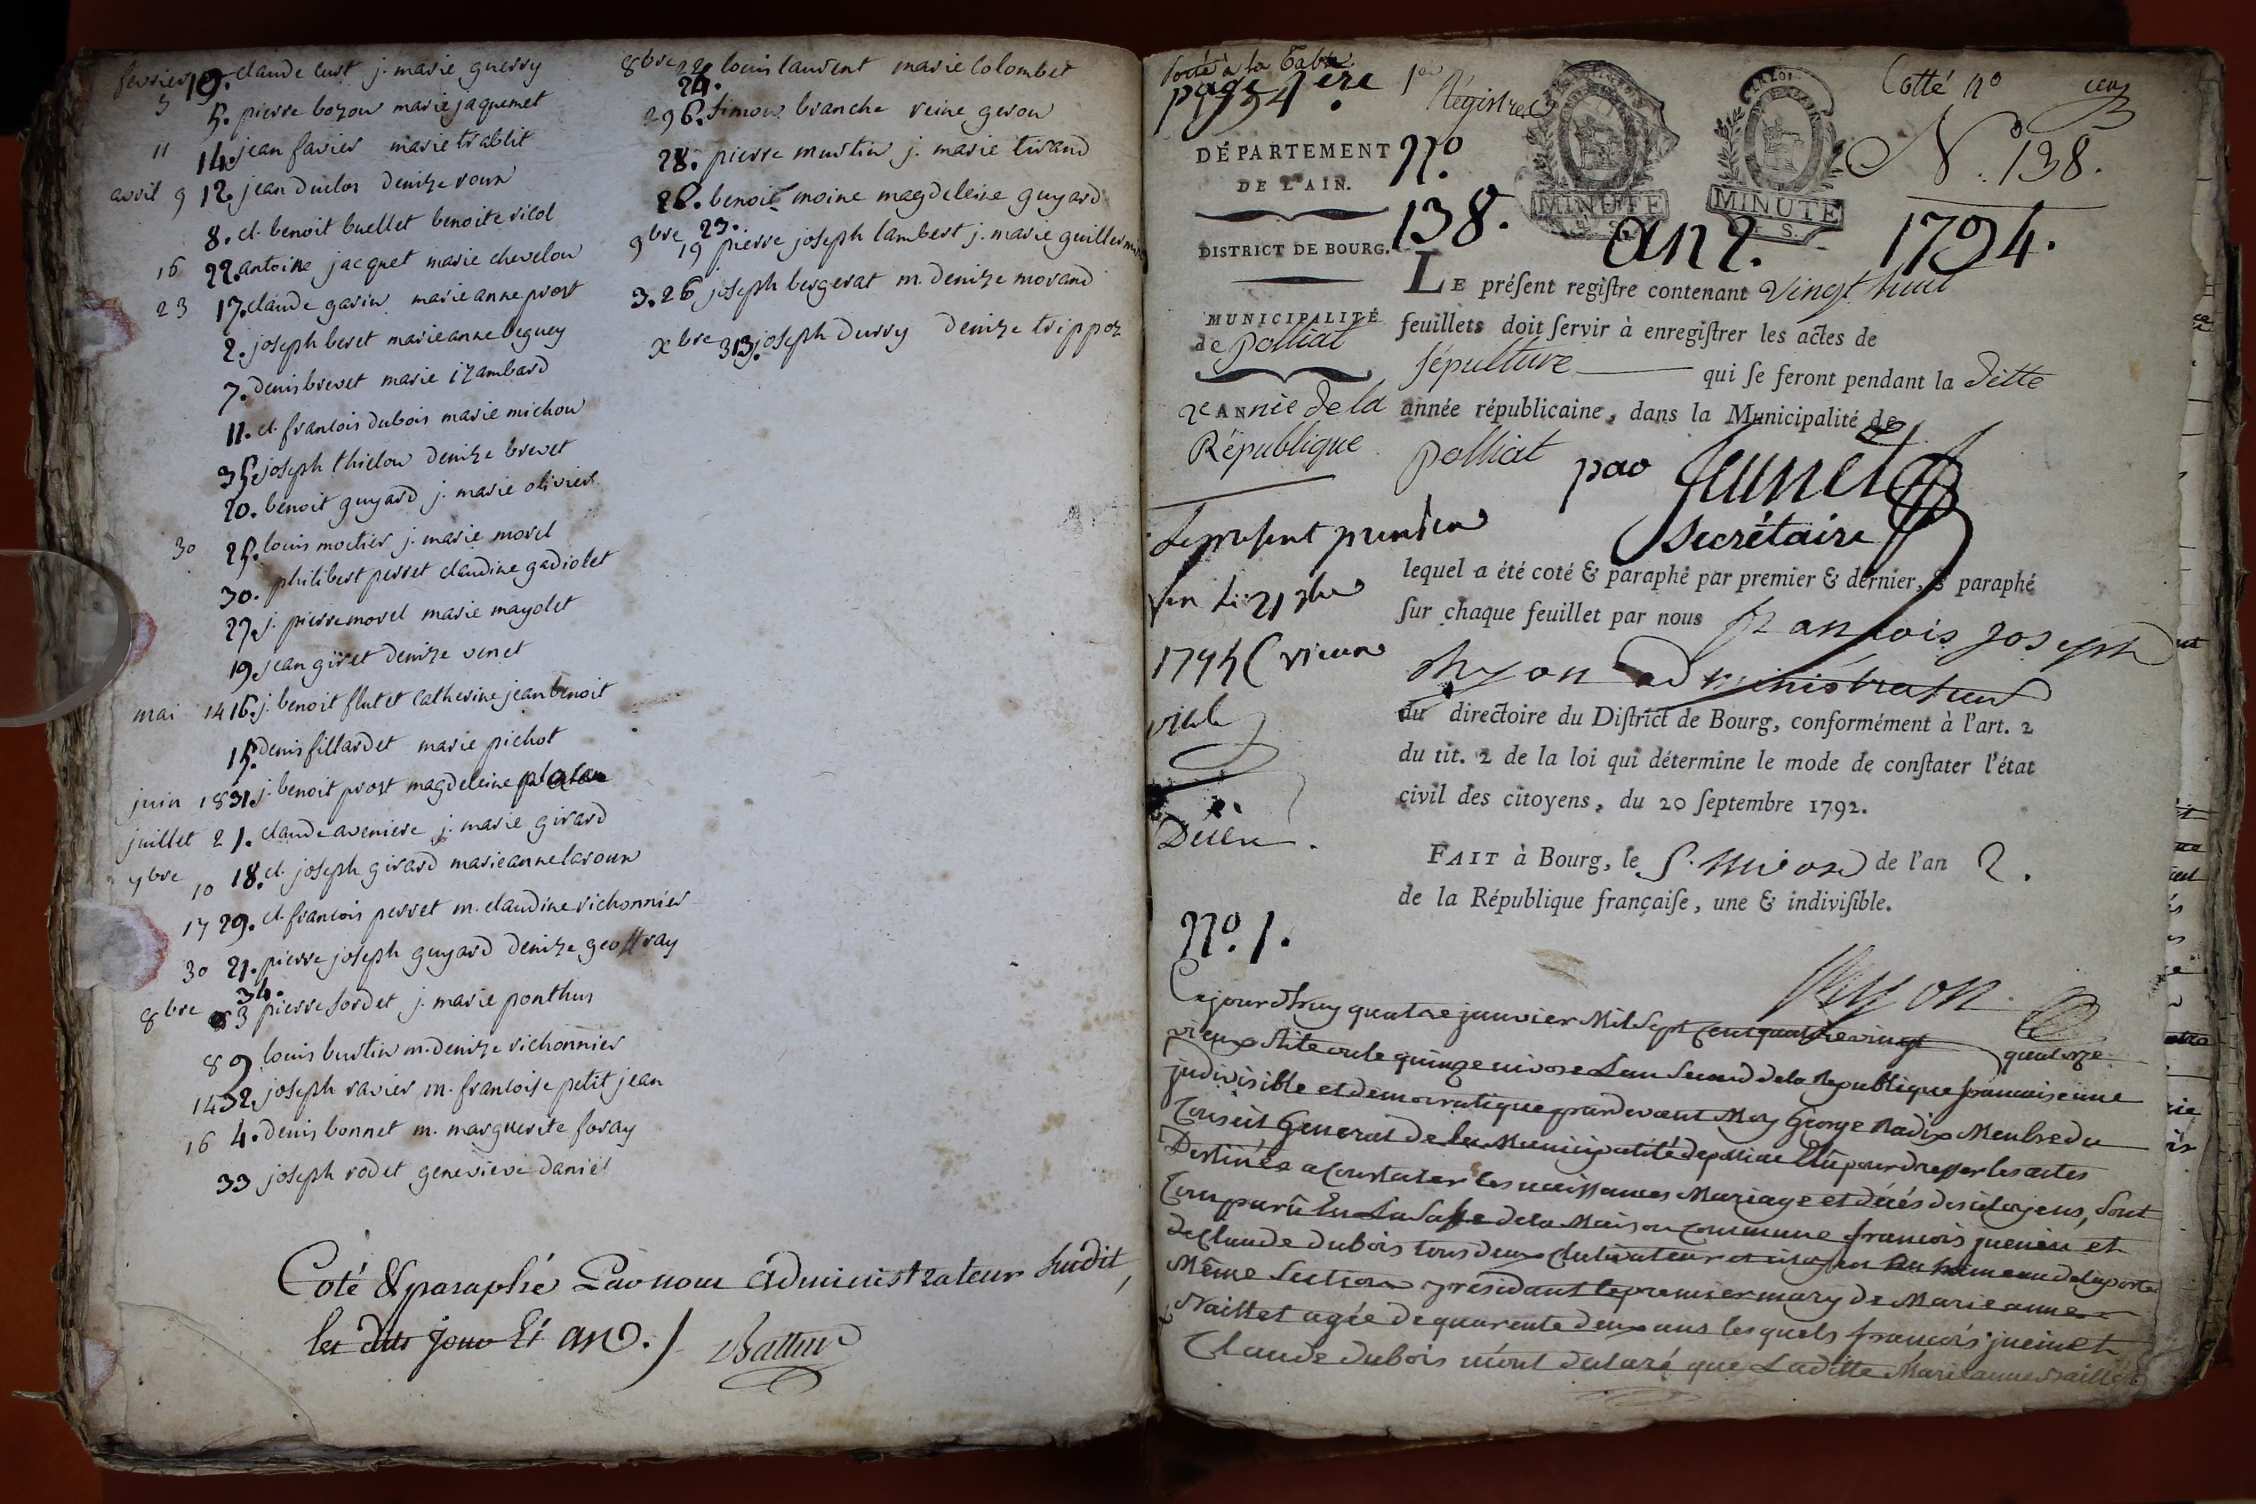 fevrier 19. claude curt j. marie guerry
3 5. pierre bozon marie jaquemet
11 14. jean favier marie trablit
avril 9 12. jean duclos denize roux
8. cl. benoit buellet benoite ricol
16 22. antoine jacquet marie chevelon
23 17. claude garin marie anne prost
2. joseph beret marie anne beguey
7. denis brevet marie izambard
11. cl. francois dubois marie michon
35. joseph thielon denize brevet
20. benoit guyard j. marie olivier
30 25. louis moctier j. marie morel
30. philibert perret claudine gadiolet
27. j. pierre morel marie mayolet
19. jean giret denize venet
mai 14 16. j. benoit flutet catherine jean benoit
15. denis fillardet marie pichot
juin 18 31. j. benoit prost magdeleine
juillet 2 1. claude aveniere j. marie girard
7bre 10 18. cl. joseph girard marie anne laroux
17 29. cl. francois perret m. claudine richonnier
30 21. pierre joseph guyard denize geoffray
34.
8bre 3 pierre sordet j. marie ponthus
8 9 louis burtin m. denize richonnier
14 32. joseph ravier m. francoise petit jean
16 4. denis bonnet m. marguerite foray
33 joseph rodet genevieve daniel
8bre 22 louis laurent marie colombet
24.
29 6. simon branche reine geron
28. pierre murtin j. marie tirand
26. benoit moine magdeleine guyard
23.
9bre 19 pierre joseph lambert j. marie guillermin
3. 26 joseph bergerat m. denize morand
xbre 3 13. joseph durry denize trippoz
Coté & paraphé Par nous administrateur susdit,
les dits jour Et an. /.
porté a la Table
page 1ere
1er Registre
Cotté no
N 138.
DÉPARTEMENT
DE L'AIN.
No
138.
MINUTE
MINUTE
an 2. 1794.
DISTRICT DE BOURG.
MUNICIPALITÉ
de Polliat
2e ANnée de la
République
LE présent registre contenant vingt huit
feuillets doit servir à enregistrer les actes de
sépulture qui se feront pendant la ditte
année républicaine, dans la Municipalité de
polliat par Jeunet
secrétaire
lequel a été coté & paraphé par premier & dernier, & paraphé
sur chaque feuillet par nous françois joseph
administrateur
du directoire du District de Bourg, conformément à l'art. 2
du tit. 2 de la loi qui détermine le mode de constater l'état
civil des citoyens, du 20 septembre 1792.
FAIT à Bourg, le 5. nivose de l'an 2.
de la République française, une & indivisible.
Le present
21
1794 ( vieux
stile
No. 1.
Cejourdhuy quatre janvier Mil Sept Cent quatre vingt quatorze
vieux stile ou le quinze nivose Lan Second de la Republique francaise une
indivisible et democratique pardevant Moy George Radix Membre du
Conseil General de la Municipalité de polliat Elu pour dresser les actes
Destinés a Constater les naissances Mariage et décés des citoyens, Sont
Comparû En La Salle de la Maison Commune francois et
de Claude dubois tous deux Cultivateur
Même Section présidant le premier mary de Marie anne
agée de quarente deux ans lesquels francois
Claude dubois m'ont declaré que Laditte Marie anne